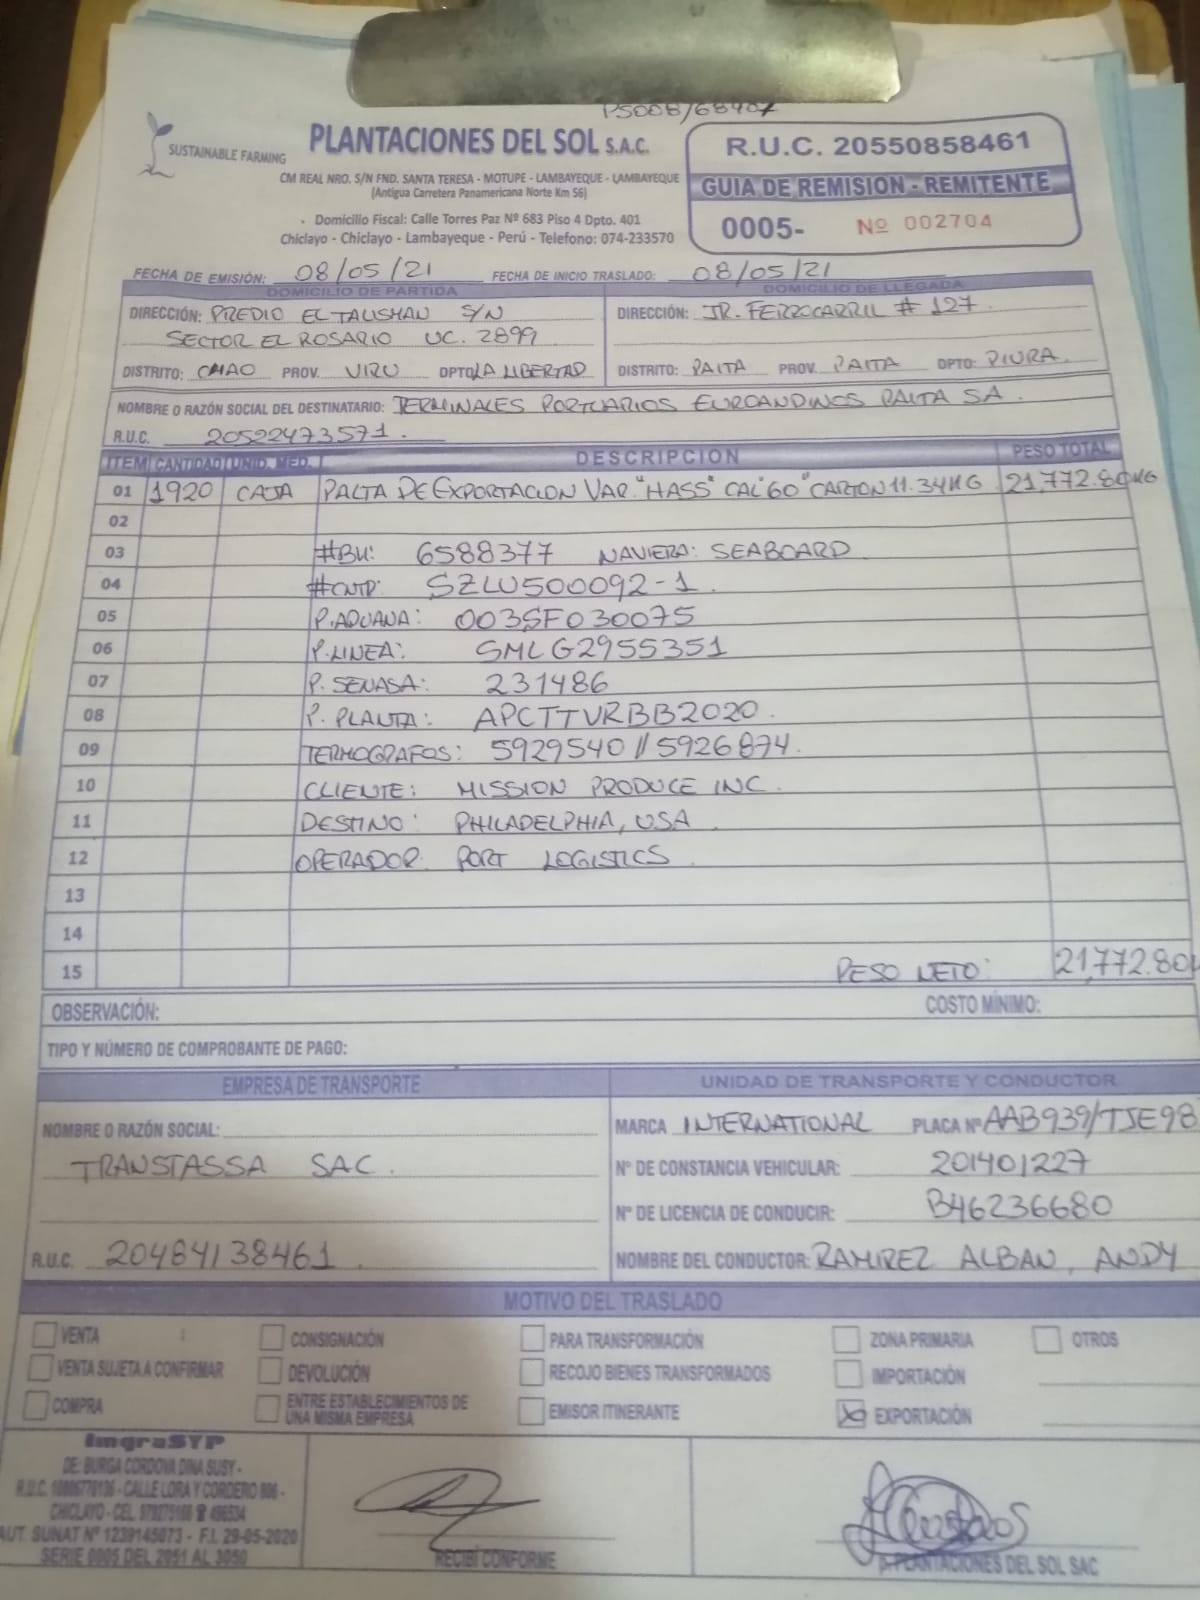 PS008/68407
SUSTAINABLE FARMING
PLANTACIONES DEL SOL S.A.C.
CM REAL NRO. S/N FND. SANTA TERESA - MOTUPE - LAMBAYEQUE - LAMBAYEQUE
(Antigua Carretera Panamericana Norte Km 56)
Domicilio Fiscal: Calle Torres Paz Nº 683 Piso 4 Dpto. 401
Chiclayo - Chiclayo - Lambayeque - Perú - Telefono: 074-233570
R.U.C. 20550858461
GUIA DE REMISION - REMITENTE
0005- Nº 002704
FECHA DE EMISIÓN: 08/05/21 FECHA DE INICIO TRASLADO: 08/05/21
DOMICILIO DE PARTIDA DOMICILIO DE LLEGADA
DIRECCIÓN: PREDIO EL TALISMAN S/N DIRECCIÓN: JR. FERROCARRIL # 127
SECTOR EL ROSARIO UC. 2899
DISTRITO: CHAO PROV. VIRU DPTO. LA LIBERTAD DISTRITO: PAITA PROV. PAITA DPTO: PIURA.
NOMBRE O RAZÓN SOCIAL DEL DESTINATARIO: TERMINALES PORTUARIOS EUROANDINOS PAITA SA.
R.U.C. 20522473571.
ITEM CANTIDAD UNID. MED. DESCRIPCION PESO TOTAL
01 1920 CAJA PALTA DE EXPORTACION VAR. "HASS" CAL "60" CARTON 11.34KG 21,772.80KG
02
03 #BK: 6588377 NAVIERA: SEABOARD
04 #CNTD: SZLU500092-1.
05 P.ADUANA: 003SF030075
06 P.LINEA: SMLG2955351
07 P. SENASA: 231486
08 P. PLANTA: APCTTVRBB2020.
09 TERMOGRAFOS: 5929540 // 5926874.
10 CLIENTE: MISSION PRODUCE INC.
11 DESTINO: PHILADELPHIA, USA
12 OPERADOR: PORT LOGISTICS
13
14
15 PESO NETO: 21,772.80
OBSERVACIÓN: COSTO MÍNIMO:
TIPO Y NÚMERO DE COMPROBANTE DE PAGO:
EMPRESA DE TRANSPORTE UNIDAD DE TRANSPORTE Y CONDUCTOR
NOMBRE O RAZÓN SOCIAL: MARCA INTERNATIONAL PLACA Nº AAB939/TJE98
TRANSTASSA SAC. Nº DE CONSTANCIA VEHICULAR: 201401227
Nº DE LICENCIA DE CONDUCIR: B46236680
R.U.C. 20484138461. NOMBRE DEL CONDUCTOR: RAMIREZ ALBAN, ANDY
MOTIVO DEL TRASLADO
VENTA CONSIGNACIÓN PARA TRANSFORMACIÓN ZONA PRIMARIA OTROS
VENTA SUJETA A CONFIRMAR DEVOLUCIÓN RECOJO BIENES TRANSFORMADOS IMPORTACIÓN
COMPRA ENTRE ESTABLECIMIENTOS DE UNA MISMA EMPRESA EMISOR ITINERANTE EXPORTACIÓN
ImgraSYP
DE: BURGA CORDOVA DINA SUSY -
- CALLE LORA Y CORDERO 806 -
AUT. SUNAT Nº 1239145073 - F.I. 29-05-2020
SERIE 0005 DEL 2051 AL 3050
RECIBÍ CONFORME
p. PLANTACIONES DEL SOL SAC